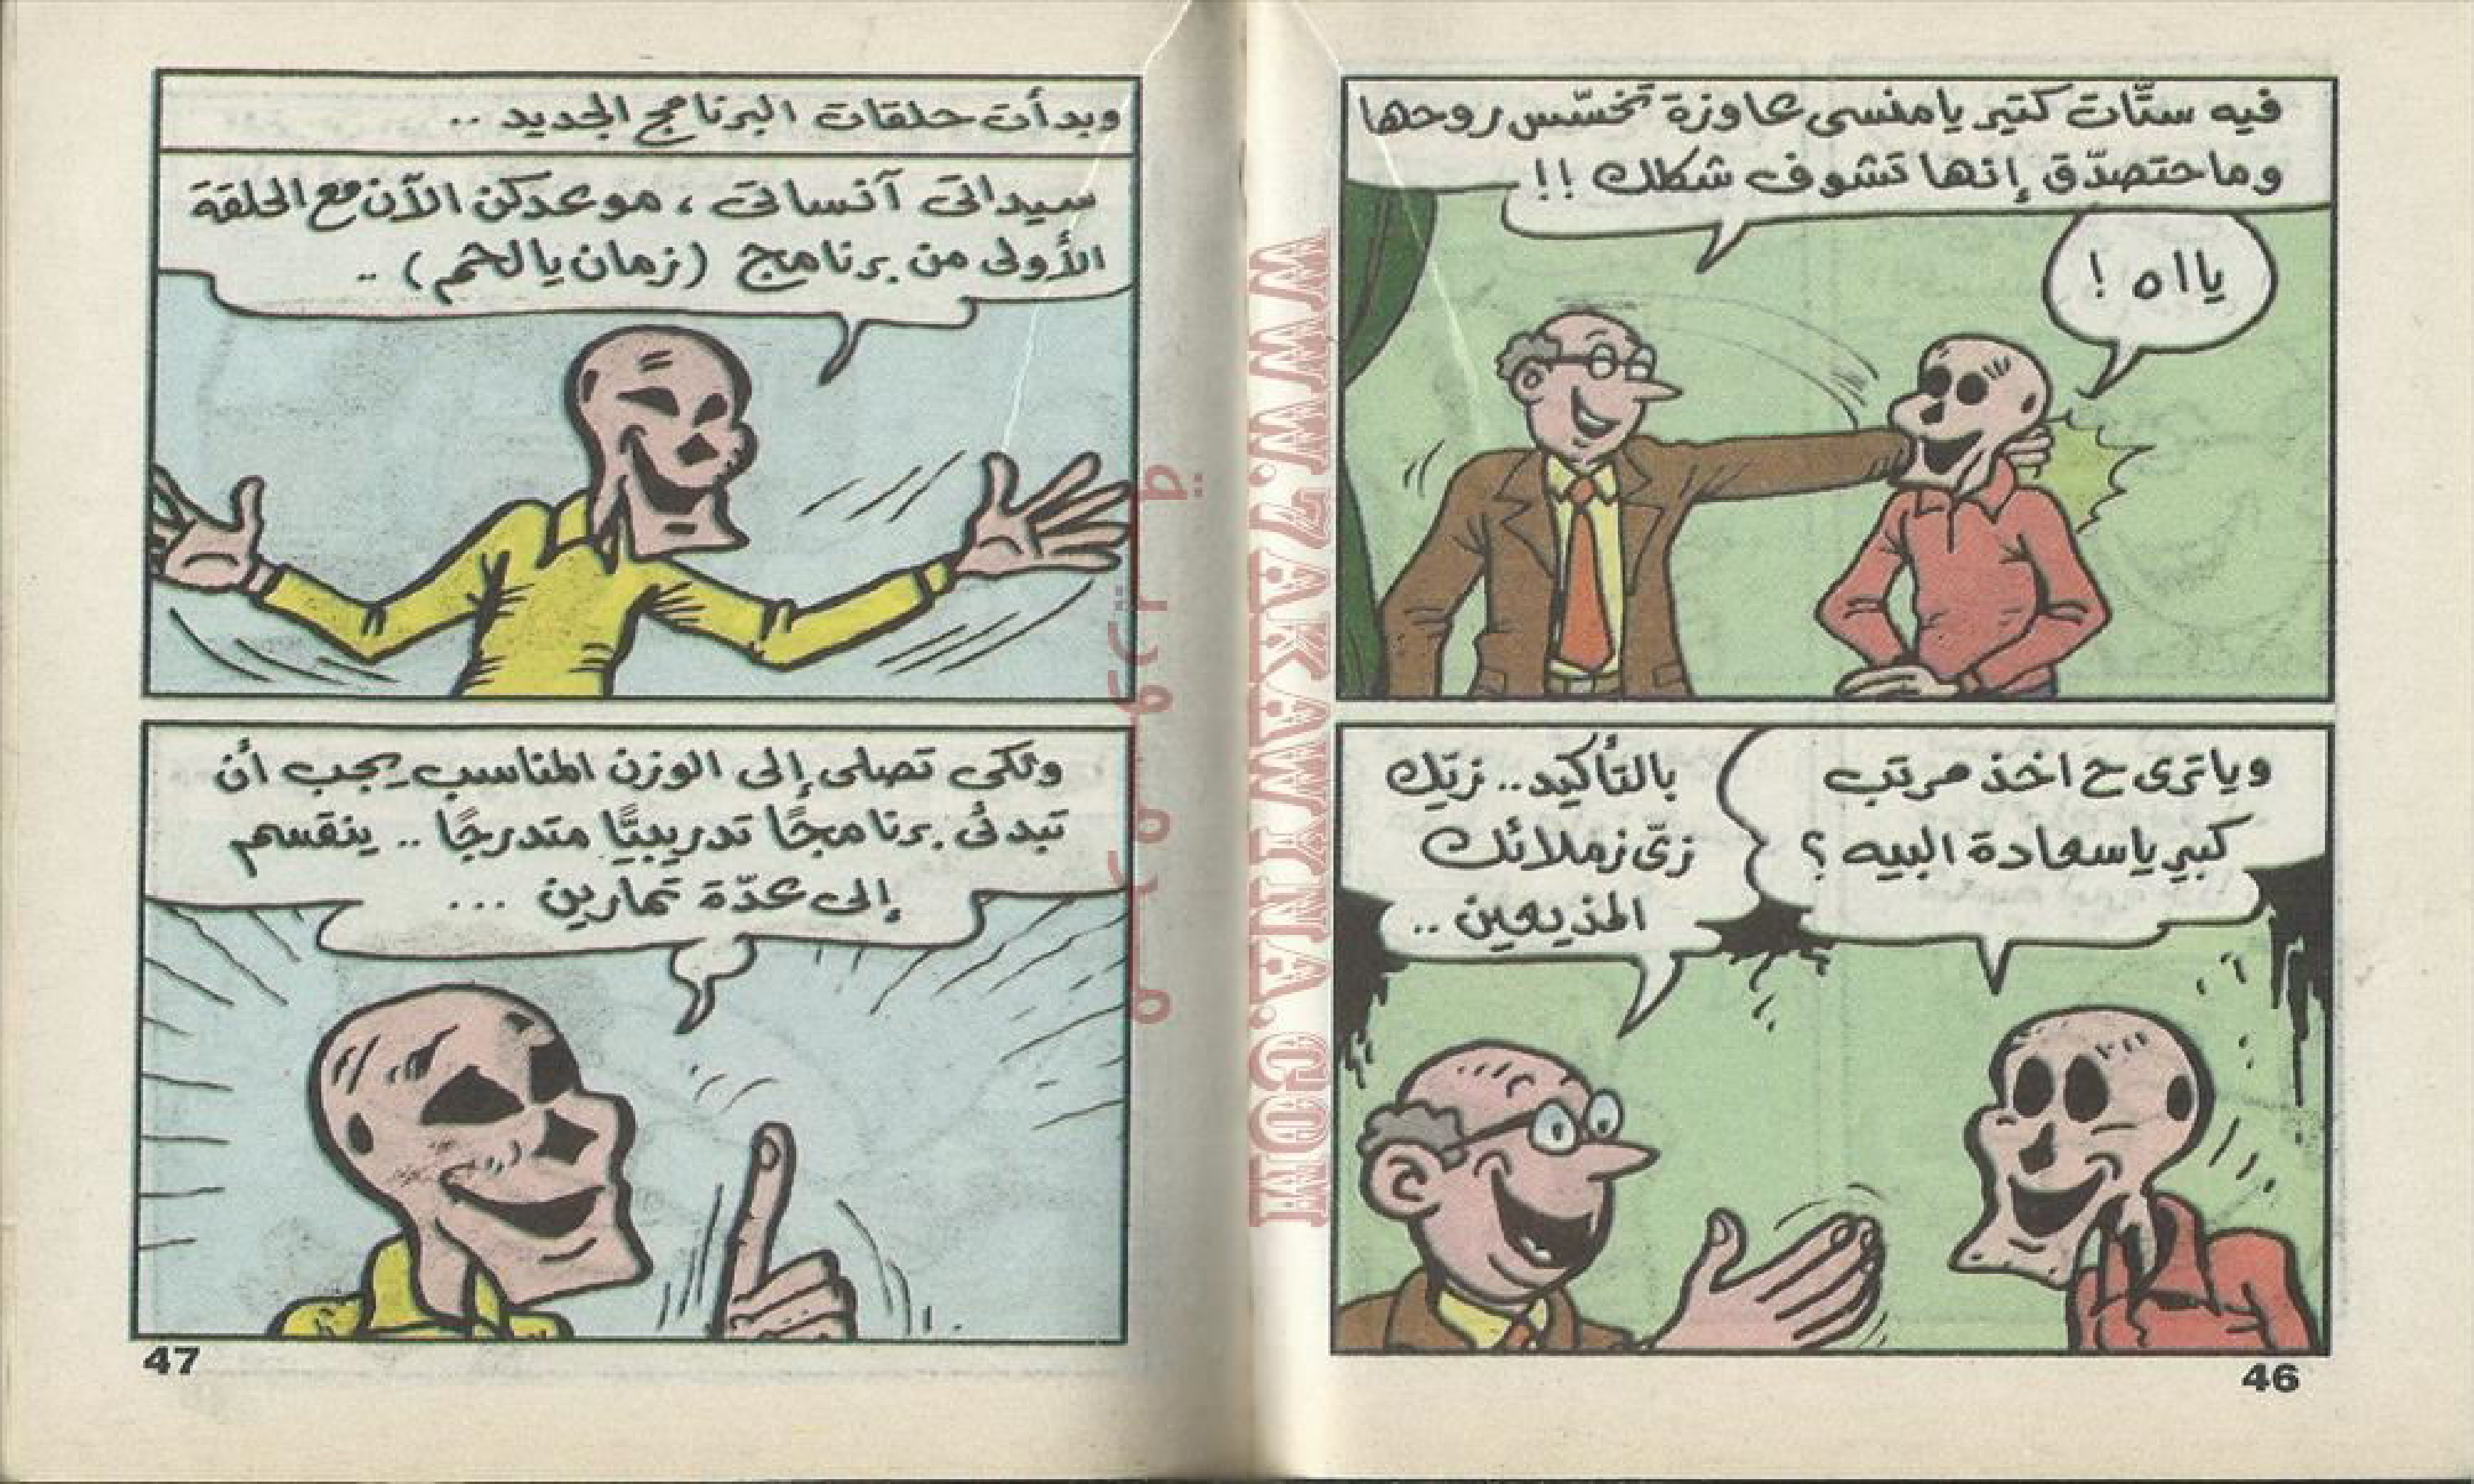 فيه ستّات كتير يا منسى عاوزة تخسّس روحها
وما حتصدّق إنها تشوف شكلك !!
يااه !
ويا ترى ح اخذ مرتب
كبير يا سعادة البيه ؟
بالتأكيد.. زيّك
زىّ زملائك
المذيعين ..
46
وبدأت حلقات البرنامج الجديد ..
سيداتى آنساتى ، موعدكن الآن مع الحلقة
الأولى من برنامج (زمان يا لحم) ..
ولكى تصلى إلى الوزن المناسب يجب أن
تبدئى برنامجًا تدريبيًّا متدرجًا .. ينقسم
إلى عدّة تمارين ...
47
WWW.7AKAWYNA.COM